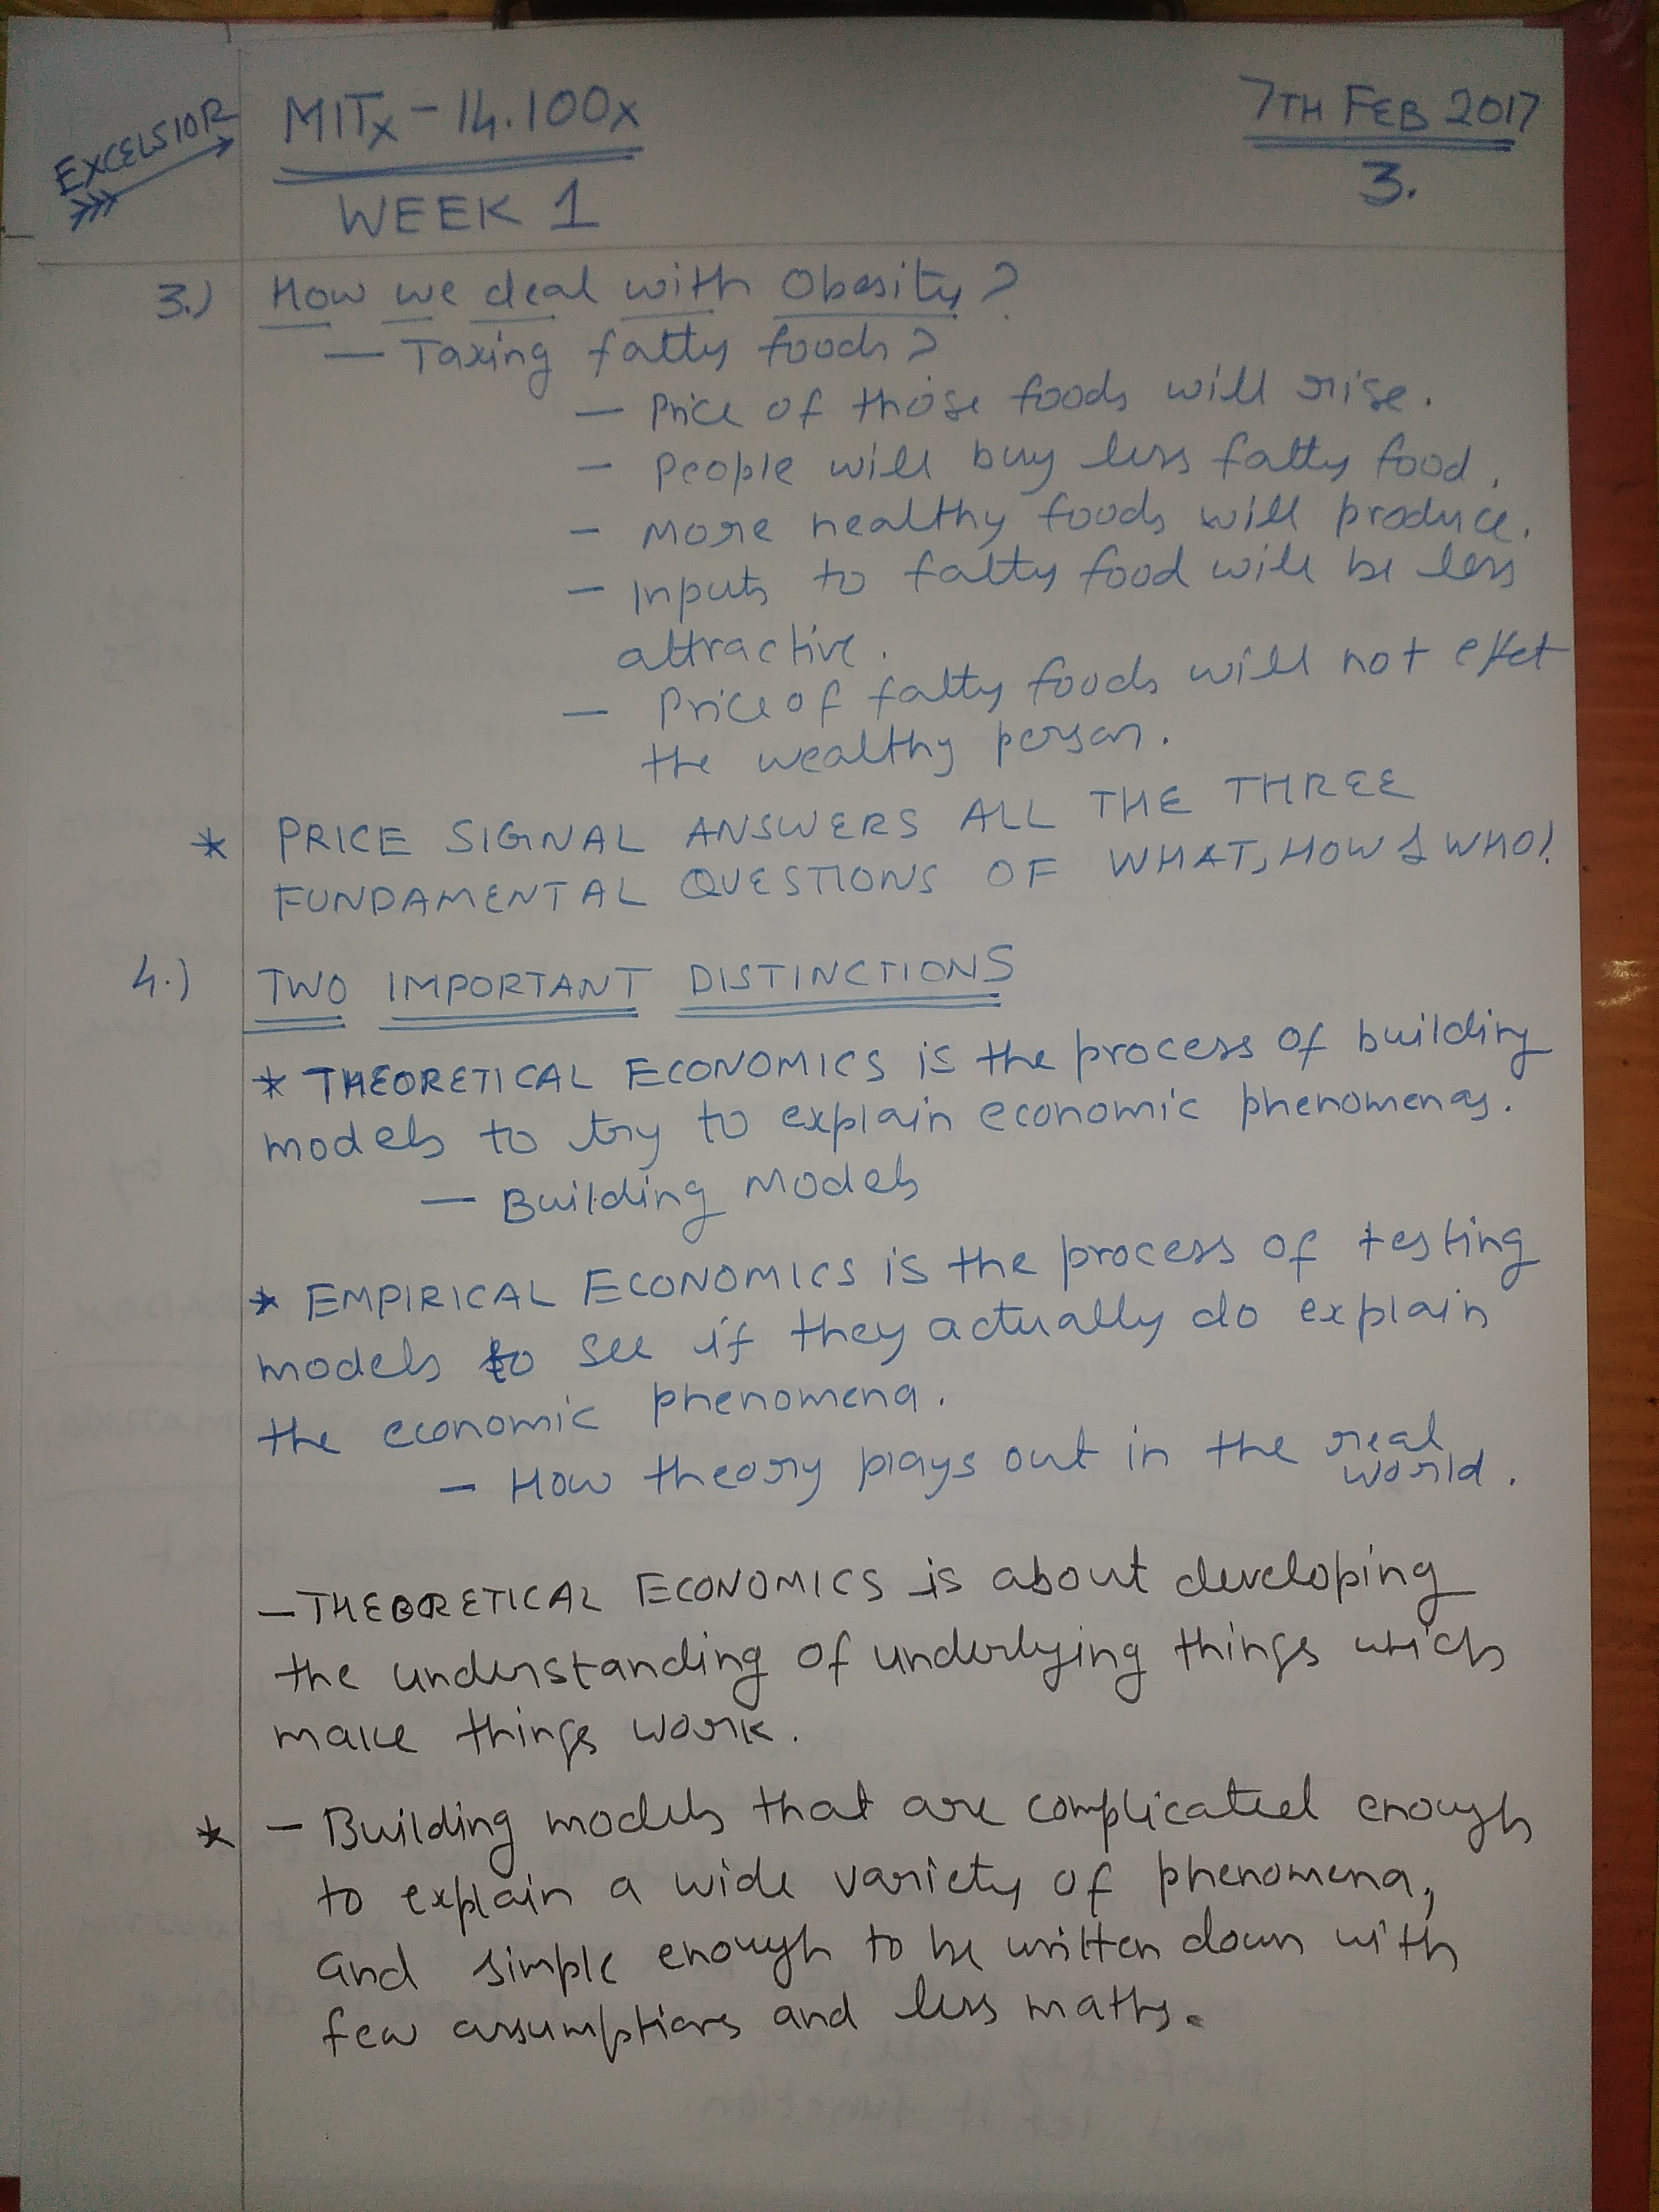 EXCELSIOR
MITx - 14.100x
7TH FEB 2017
WEEK 1
3.
3.) How we deal with Obesity?
— Taxing fatty foods?
— Price of those foods will rise.
— People will buy less fatty food.
— More healthy foods will produce.
— Inputs to fatty food will be less
attractive.
— Price of fatty foods will not effet
the wealthy person.
* PRICE SIGNAL ANSWERS ALL THE THREE
FUNDAMENTAL QUESTIONS OF WHAT, HOW & WHO!
4.) TWO IMPORTANT DISTINCTIONS
* THEORETICAL ECONOMICS is the process of building
models to try to explain economic phenomenas.
— Building Models
* EMPIRICAL ECONOMICS is the process of testing
models to see if they actually do explain
the economic phenomena.
— How theory plays out in the real
world.
— THEORETICAL ECONOMICS is about developing
the understanding of underlying things which
make things work.
* — Building models that are complicated enough
to explain a wide variety of phenomena,
and simple enough to be written down with
few assumptions and less maths.